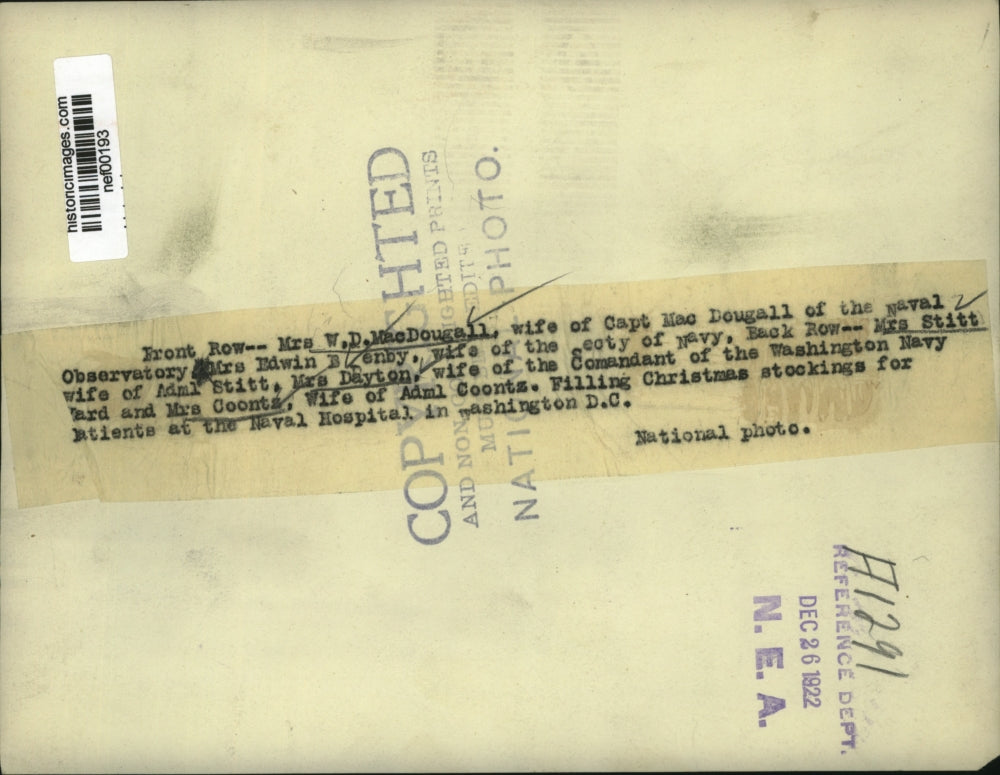 historicimages.com
nef00193
COPYRIGHTED
AND NON
NATIONAL PHOTO.
Front Row-- Mrs W.D.MacDougall, wife of Capt Mac Dougall of the Naval
Observatory Mrs Edwin enby, wife of the ecty of Navy, Back Row-- Mrs Stitt
wife of Adml Stitt, Mrs Dayton, wife of the Comandant of the Washington Navy
ard and Mrs Coontz, Wife of Adml Coontz. Filling Christmas stockings for
atients at the Naval Hospital in ashington D.C.
National photo.
A1291
REFERENCE DEPT.
DEC 26 1922
N. E. A.